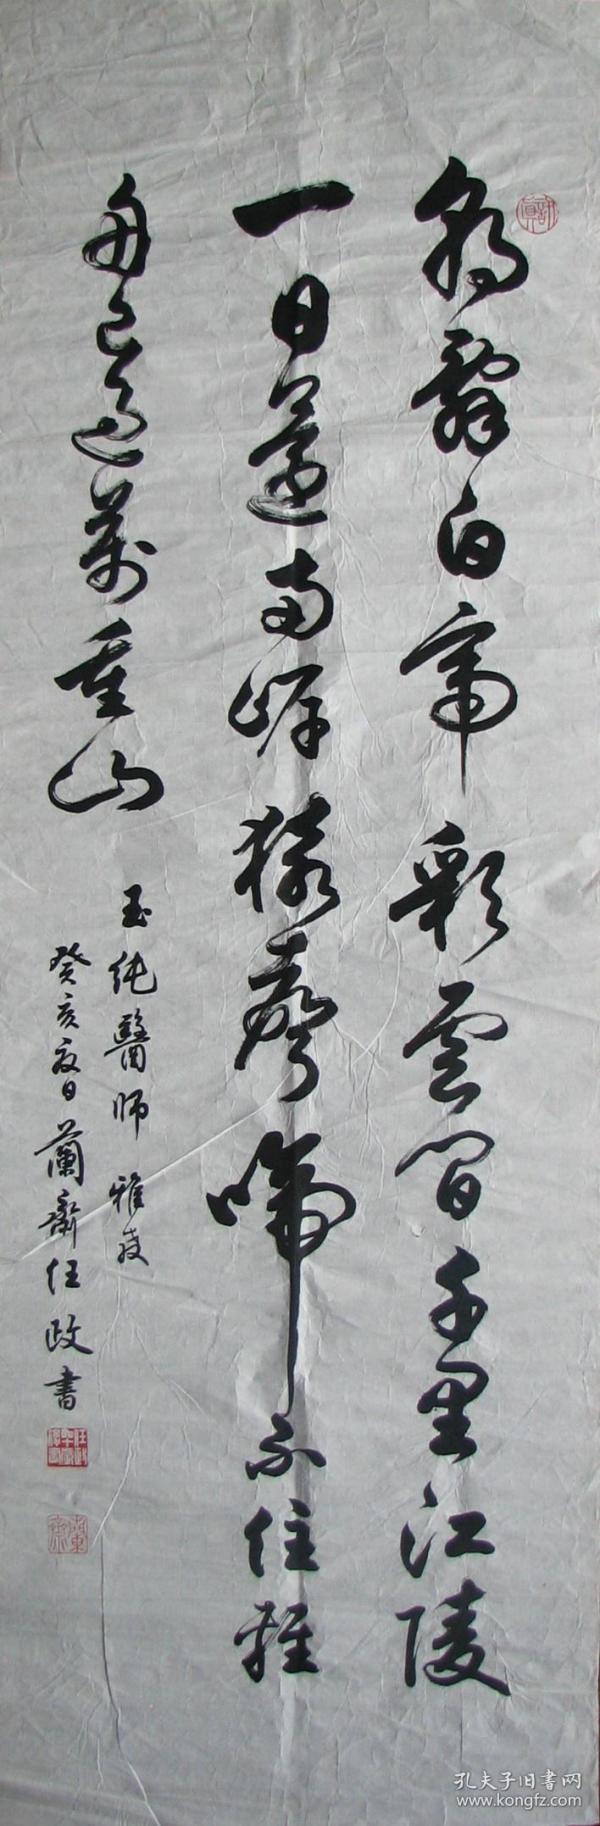 朝辭白帝彩雲間千里江陵
一日還兩岸猿聲啼不住輕
舟已過萬重山
玉純醫師 雅教
癸亥夏日蘭齋任政書
孔夫子旧書网
www.kongfz.com